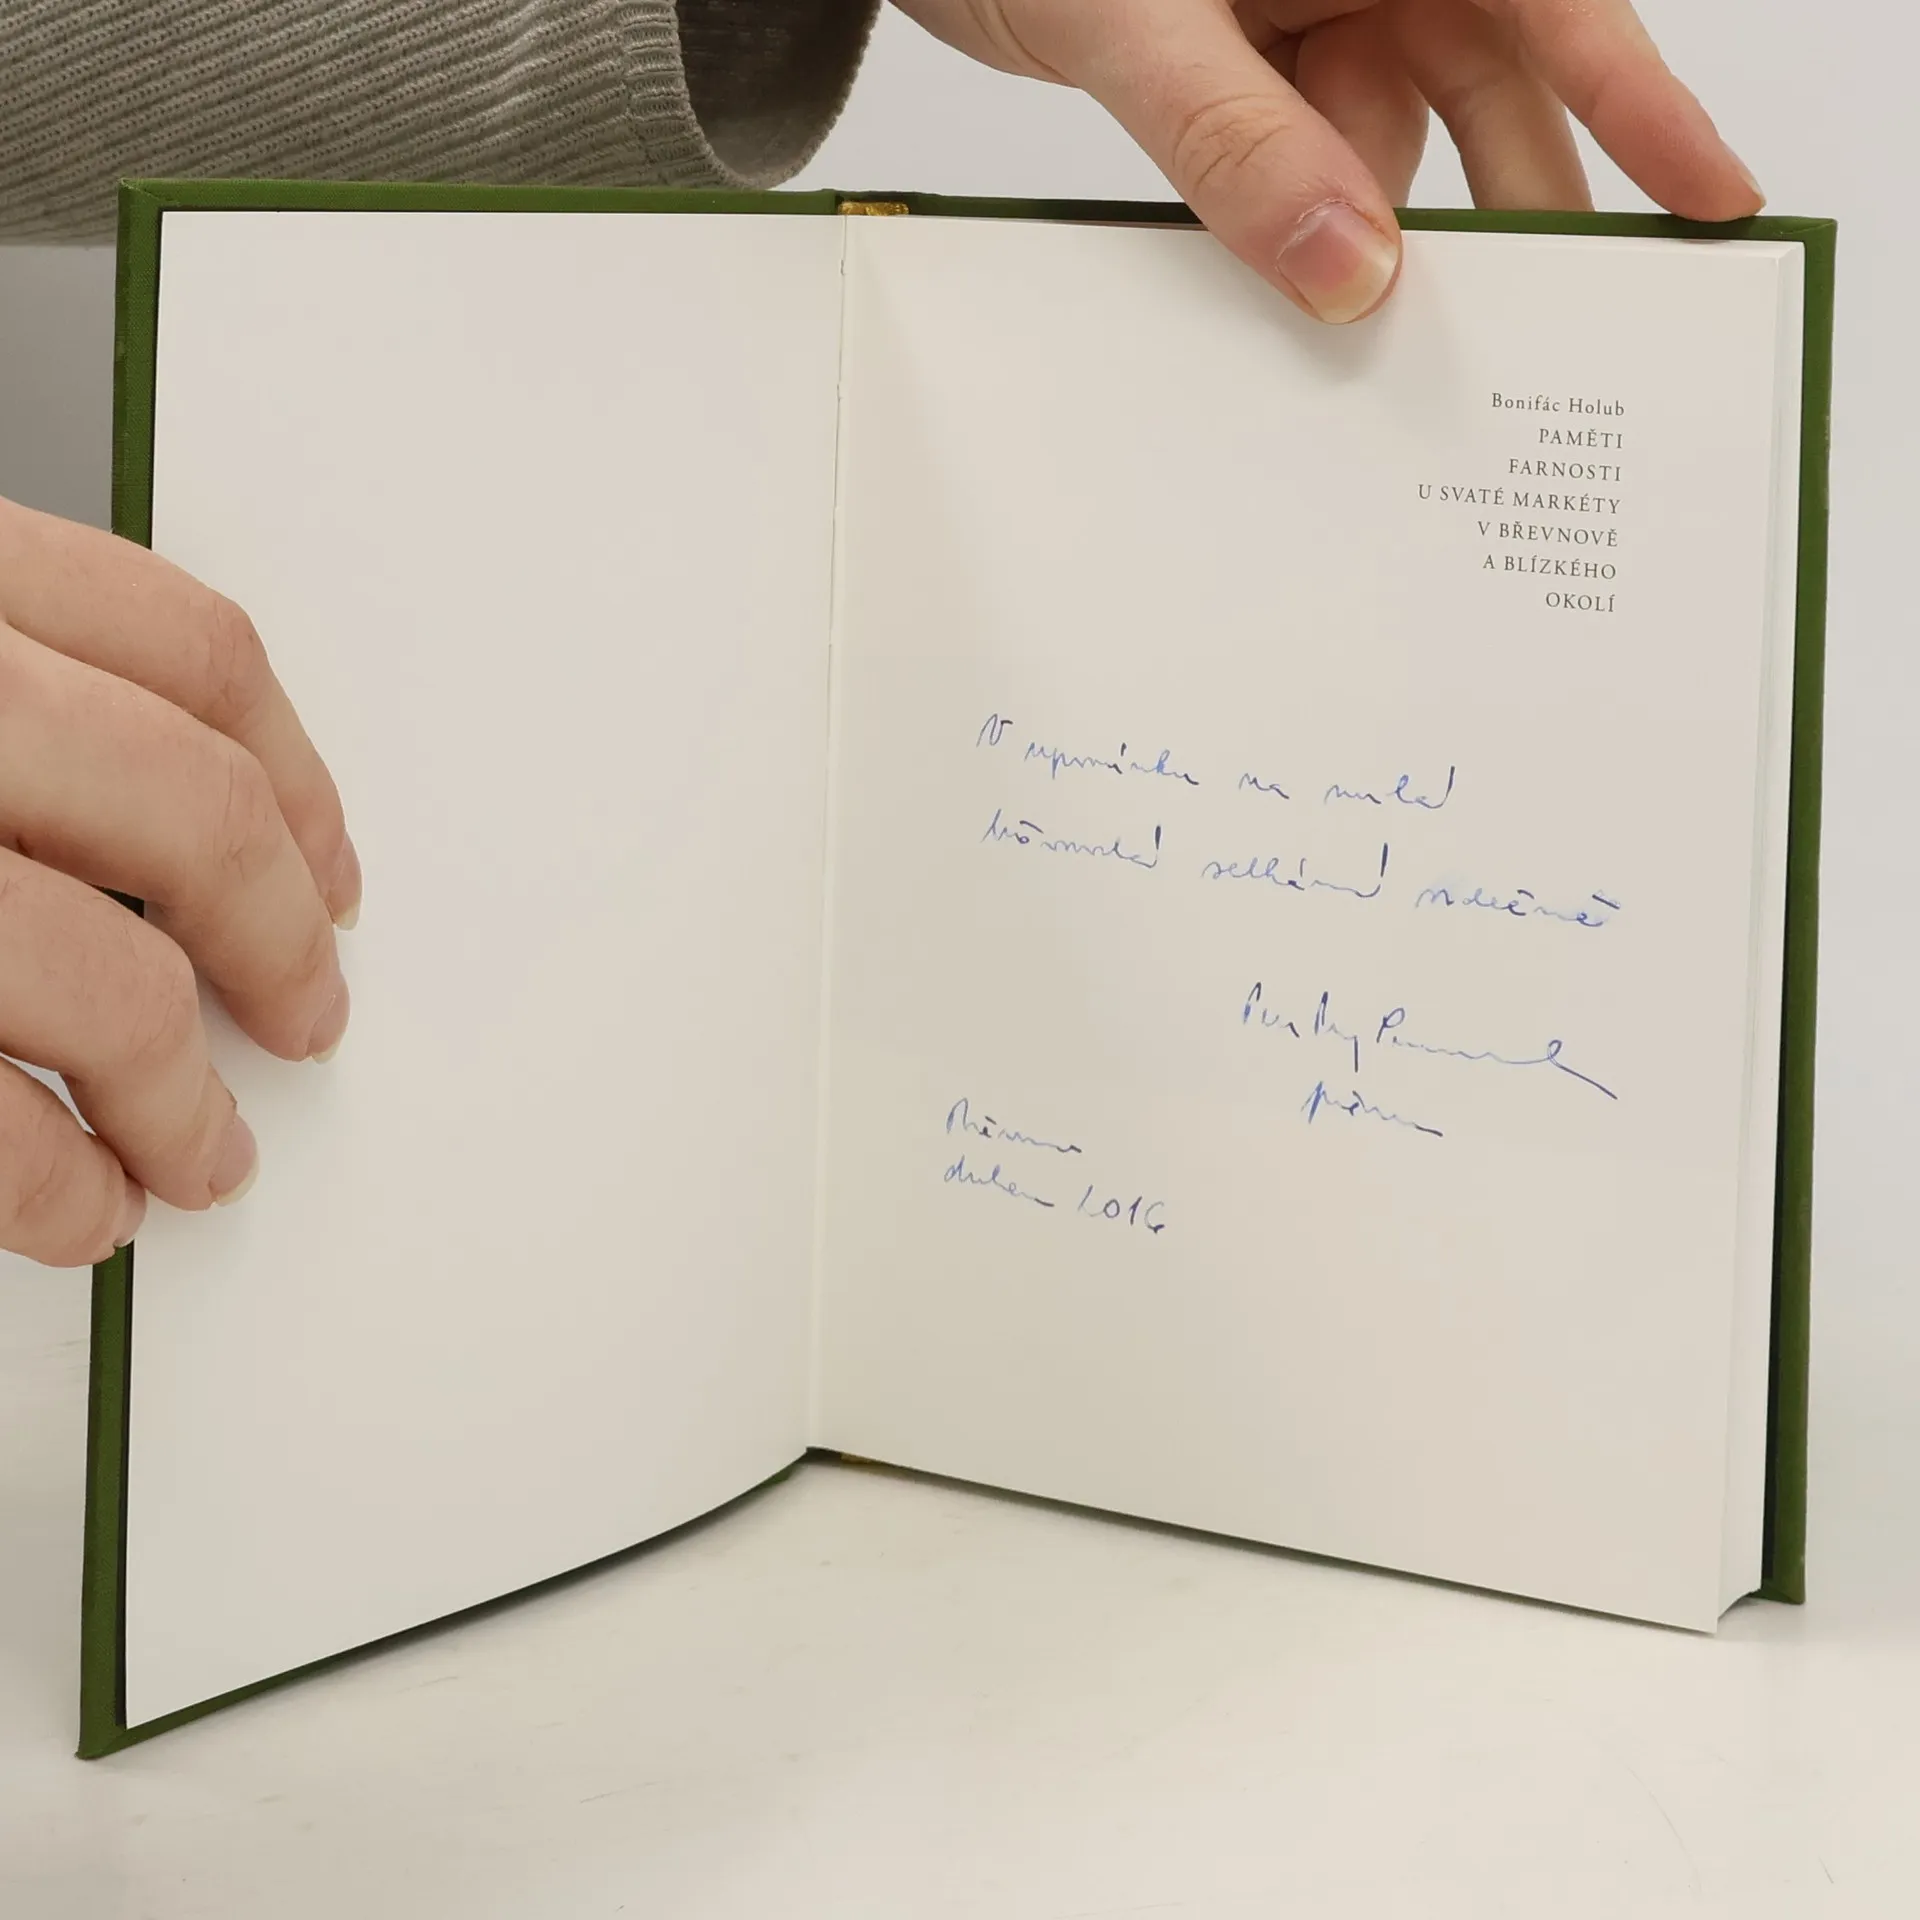 Bonifác Holub
PAMĚTI
FARNOSTI
U SVATÉ MARKÉTY
V BŘEVNOVĚ
A BLÍZKÉHO
OKOLÍ
V upomínku na milá
břevnovská setkání srdečně
duben 2016